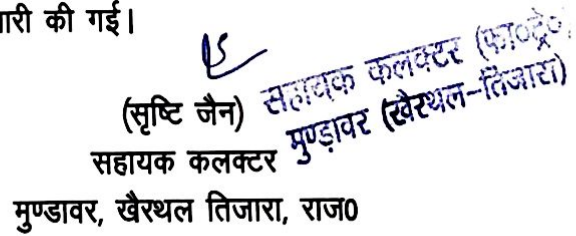 ारी की गई।
(सृष्टि जैन)
सहायक कलक्टर
मुण्डावर, खैरथल तिजारा, राज0
सहायक कलक्टर (फा०ट्रे०
मुण्ड़ावर (खैरथल-तिजारा)